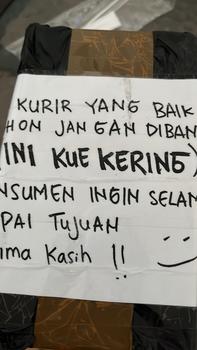 KURIR YANG BAIK
HON JANGAN DIBAN
(INI KUE KERING)
NSUMEN INGIN SELAM
PAI TUJUAN
ima Kasih !!